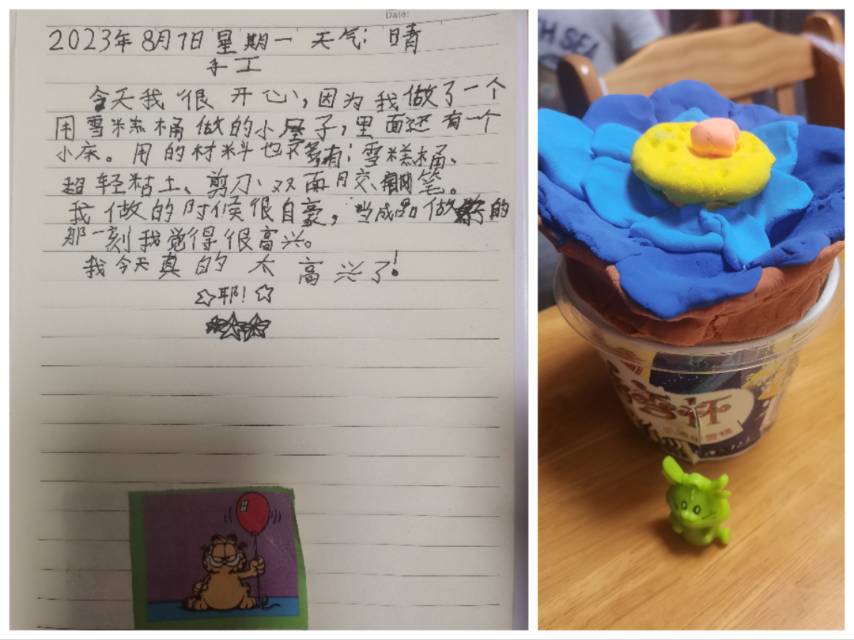 Date:
2023年8月7日 星期一 天气：晴
手工
今天我很开心，因为我做了一个
用雪糕桶做的小屋子，里面还有一个
小床。用的材料也很有：雪糕桶、
超轻粘土、剪刀、双面胶、钢笔。
我做的时候很自豪，当成品做的
那一刻我觉得很高兴。
我今天真的太高兴了！
☆耶！☆
TH SEA
雪糕